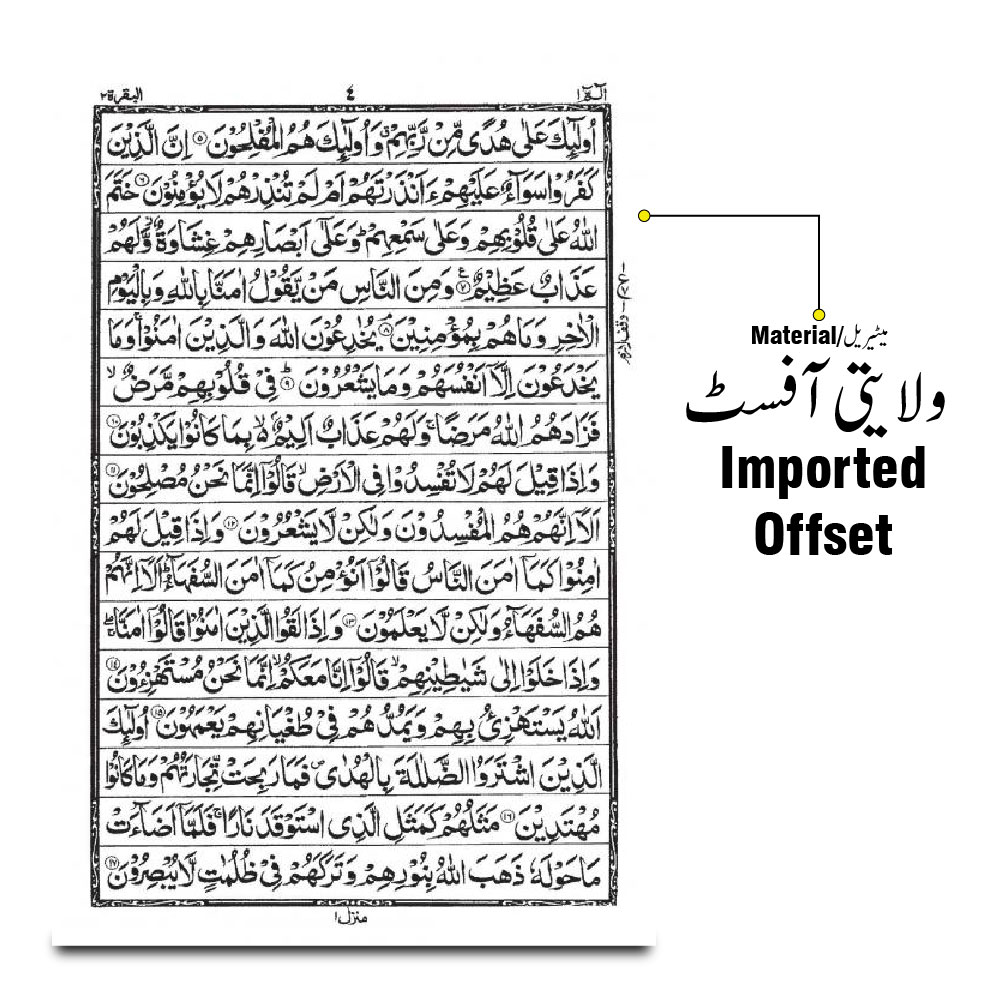 الٓمّٓ ١
٤
البقرة ٢
اُولٰٓئِكَ عَلٰى هُدًى مِّنْ رَّبِّهِمْ ۗ وَاُولٰٓئِكَ هُمُ الْمُفْلِحُوْنَ ۝۵ اِنَّ الَّذِيْنَ
كَفَرُوْا سَوَآءٌ عَلَيْهِمْ ءَاَنْذَرْتَهُمْ اَمْ لَمْ تُنْذِرْهُمْ لَا يُؤْمِنُوْنَ ۝۶ خَتَمَ
اللّٰهُ عَلٰى قُلُوْبِهِمْ وَعَلٰى سَمْعِهِمْ ؕ وَعَلٰٓى اَبْصَارِهِمْ غِشَاوَةٌ ؗ وَّلَهُمْ
عَذَابٌ عَظِيْمٌ ۝۷ وَمِنَ النَّاسِ مَنْ يَّقُوْلُ اٰمَنَّا بِاللّٰهِ وَبِالْيَوْمِ
الْاٰخِرِ وَمَا هُمْ بِمُؤْمِنِيْنَ ۝۸ يُخٰدِعُوْنَ اللّٰهَ وَالَّذِيْنَ اٰمَنُوْا ۚ وَمَا
يَخْدَعُوْنَ اِلَّآ اَنْفُسَهُمْ وَمَا يَشْعُرُوْنَ ؕ۝۹ فِيْ قُلُوْبِهِمْ مَّرَضٌ ۙ
فَزَادَهُمُ اللّٰهُ مَرَضًا ۚ وَلَهُمْ عَذَابٌ اَلِيْمٌ ۙ۬ بِمَا كَانُوْا يَكْذِبُوْنَ ۝۱۰
وَاِذَا قِيْلَ لَهُمْ لَا تُفْسِدُوْا فِى الْاَرْضِ ۙ قَالُوْٓا اِنَّمَا نَحْنُ مُصْلِحُوْنَ ۝۱۱
اَلَآ اِنَّهُمْ هُمُ الْمُفْسِدُوْنَ وَلٰكِنْ لَّا يَشْعُرُوْنَ ۝۱۲ وَاِذَا قِيْلَ لَهُمْ
اٰمِنُوْا كَمَآ اٰمَنَ النَّاسُ قَالُوْٓا اَنُؤْمِنُ كَمَآ اٰمَنَ السُّفَهَآءُ ؕ اَلَآ اِنَّهُمْ
هُمُ السُّفَهَآءُ وَلٰكِنْ لَّا يَعْلَمُوْنَ ۝۱۳ وَاِذَا لَقُوا الَّذِيْنَ اٰمَنُوْا قَالُوْٓا اٰمَنَّا ۚۖ
وَاِذَا خَلَوْا اِلٰى شَيٰطِيْنِهِمْ ۙ قَالُوْٓا اِنَّا مَعَكُمْ ۙ اِنَّمَا نَحْنُ مُسْتَهْزِءُوْنَ ۝۱۴
اَللّٰهُ يَسْتَهْزِئُ بِهِمْ وَيَمُدُّهُمْ فِيْ طُغْيَانِهِمْ يَعْمَهُوْنَ ۝۱۵ اُولٰٓئِكَ
الَّذِيْنَ اشْتَرَوُا الضَّلٰلَةَ بِالْهُدٰى ۪ فَمَا رَبِحَتْ تِّجَارَتُهُمْ وَمَا كَانُوْا
مُهْتَدِيْنَ ۝۱۶ مَثَلُهُمْ كَمَثَلِ الَّذِى اسْتَوْقَدَ نَارًا ۚ فَلَمَّآ اَضَآءَتْ
مَا حَوْلَهٗ ذَهَبَ اللّٰهُ بِنُوْرِهِمْ وَتَرَكَهُمْ فِيْ ظُلُمٰتٍ لَّا يُبْصِرُوْنَ ۝۱۷
منزل ١
وقف لازم
Material/میٹیریل
ولایتی آفسٹ
Imported
Offset